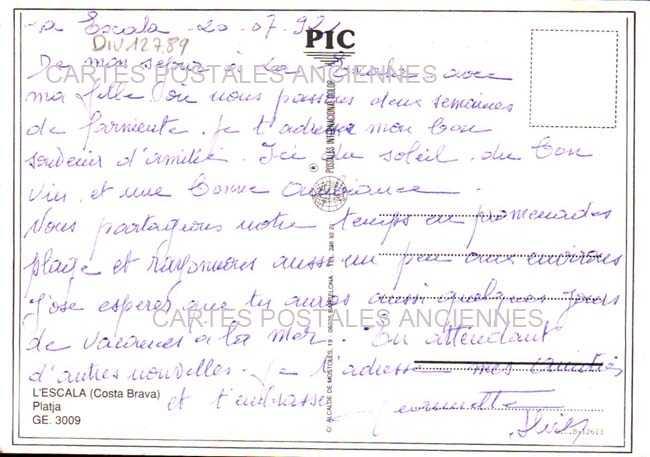 La Escala 20.07.92
DIV.127.89
PIC
De mon séjour à La Escala avec
CARTES POSTALES ANCIENNES
ma fille où nous passons deux semaines
de farniente. je t'adresse mon bon
souvenir d'amitié. Ici du soleil du bon
vin et une bonne ambiance.
Nous partageons notre temps en promenades
plage et rayonnons aussi un peu aux environs
J'ose espérer que tu auras aussi quelques jours
CARTES POSTALES ANCIENNES
de vacances à la mer. En attendant
d'autres nouvelles. je t'adresse mes amitiés
et t'embrasse
L'ESCALA (Costa Brava)
Platja
GE. 3009
POSTALES INTERNACIONAL COLOR
C/ ALCALDE DE MOSTOLES, 19 BARCELONA - TEL.